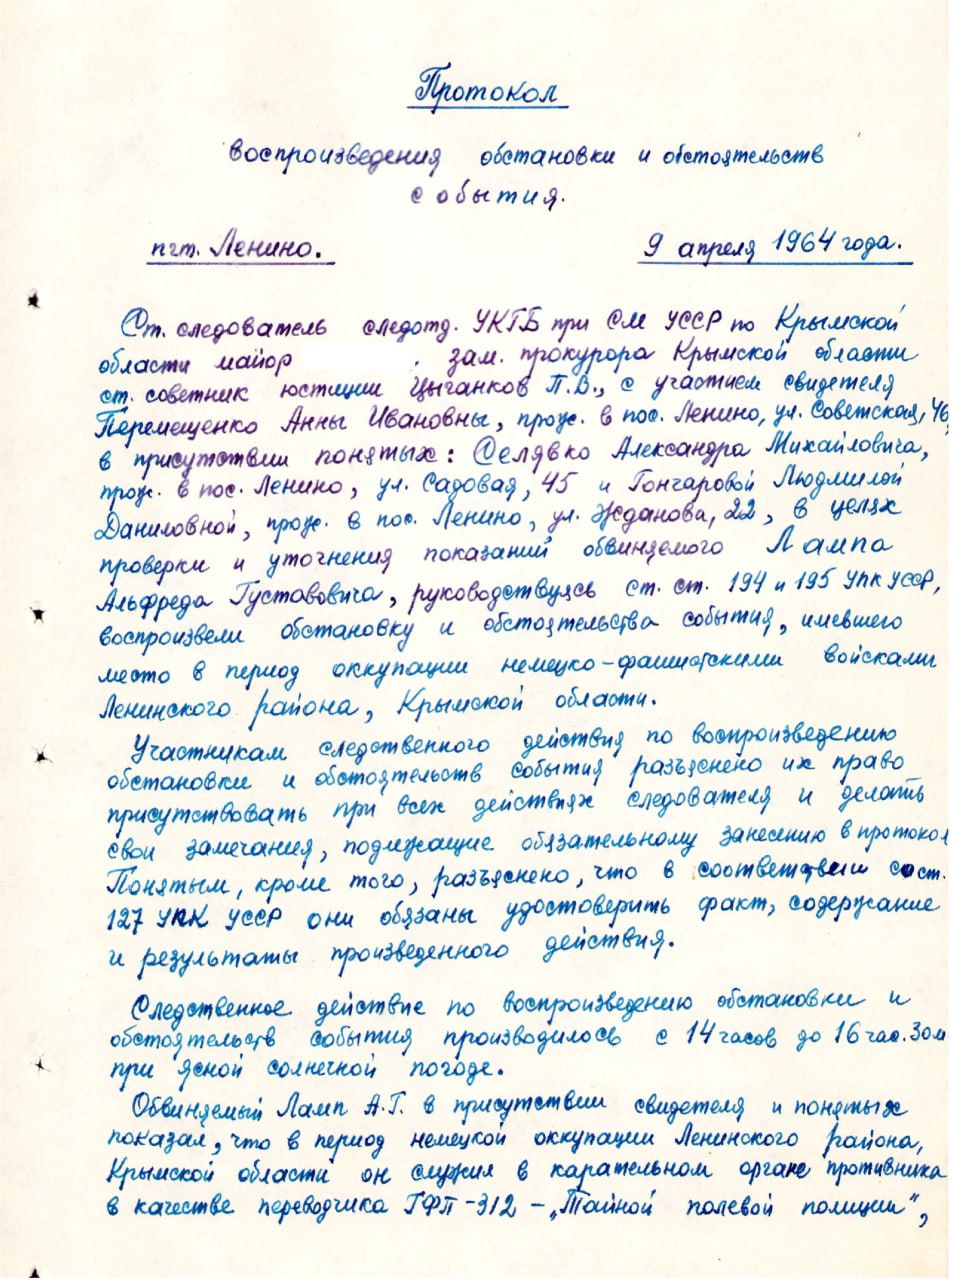 Протокол
воспроизведения обстановки и обстоятельств
события.
пгт. Ленино. 9 апреля 1964 года.
Ст. следователь следотд. УКГБ при СМ УССР по Крымской
области майор , зам. прокурора Крымской области
ст. советник юстиции Цыганков П.В., с участием свидетеля
Перемещенко Анны Ивановны, прож. в пос. Ленино, ул. Советская, 46,
в присутствии понятых: Селявко Александра Михайловича,
прож. в пос. Ленино, ул. Садовая, 45 и Гончаровой Людмилой
Даниловной, прож. в пос. Ленино, ул. Жданова, 22, в целях
проверки и уточнения показаний обвиняемого Лампа
Альфреда Густавовича, руководствуясь ст. ст. 194 и 195 УПК УССР,
воспроизвели обстановку и обстоятельства события, имевшего
место в период оккупации немецко-фашистскими войсками
Ленинского района, Крымской области.
Участникам следственного действия по воспроизведению
обстановки и обстоятельств события разъяснено их право
присутствовать при всех действиях следователя и делать
свои замечания, подлежащие обязательному занесению в протокол
Понятым, кроме того, разъяснено, что в соответствии со ст.
127 УПК УССР они обязаны удостоверить факт, содержание
и результаты произведенного действия.
Следственное действие по воспроизведению обстановки и
обстоятельств события производилось с 14 часов до 16 час. 30 м
при ясной солнечной погоде.
Обвиняемый Ламп А.Г. в присутствии свидетеля и понятых
показал, что в период немецкой оккупации Ленинского района,
Крымской области он служил в карательном органе противника
в качестве переводчика ГФП-312 – „Тайной полевой полиции“,